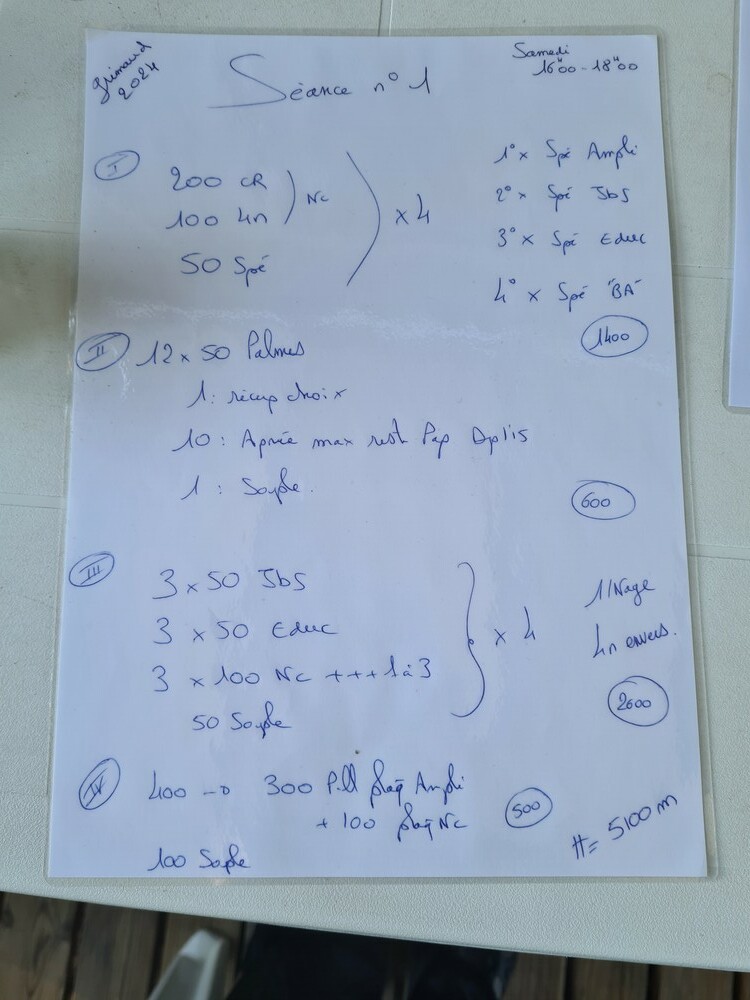 Grimaud
2024
Séance n° 1
Samedi
16H00 - 18H00
I
200 CR
100 4n
) Nc
50 Spé
x 4
1° x Spé Ampli
2° x Spé JbS
3° x Spé Educ
4° x Spé "BA"
1400
II 12 x 50 Palmes
1 : récup choix
10 : Apnée max rest Pap Dplis
1 : Souple.
600
III
3 x 50 JbS
3 x 50 Educ
3 x 100 Nc +++ 1 à 3
50 Souple
x 4
1/Nage
4n envers.
2600
IV 400 → 300 Pull plaq Ampli
+ 100 plaq Nc
500
100 Souple
H = 5100 m